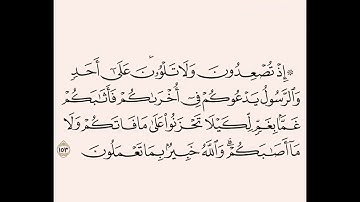 ۞ إِذْ تُصْعِدُونَ وَلَا تَلْوُۥنَ عَلَىٰٓ أَحَدٍ
وَٱلرَّسُولُ يَدْعُوكُمْ فِىٓ أُخْرَىٰكُمْ فَأَثَـٰبَكُمْ
غَمًّۢا بِغَمٍّ لِّكَيْلَا تَحْزَنُوا۟ عَلَىٰ مَا فَاتَكُمْ وَلَا
مَآ أَصَـٰبَكُمْ ۗ وَٱللَّهُ خَبِيرٌۢ بِمَا تَعْمَلُونَ ١٥٣